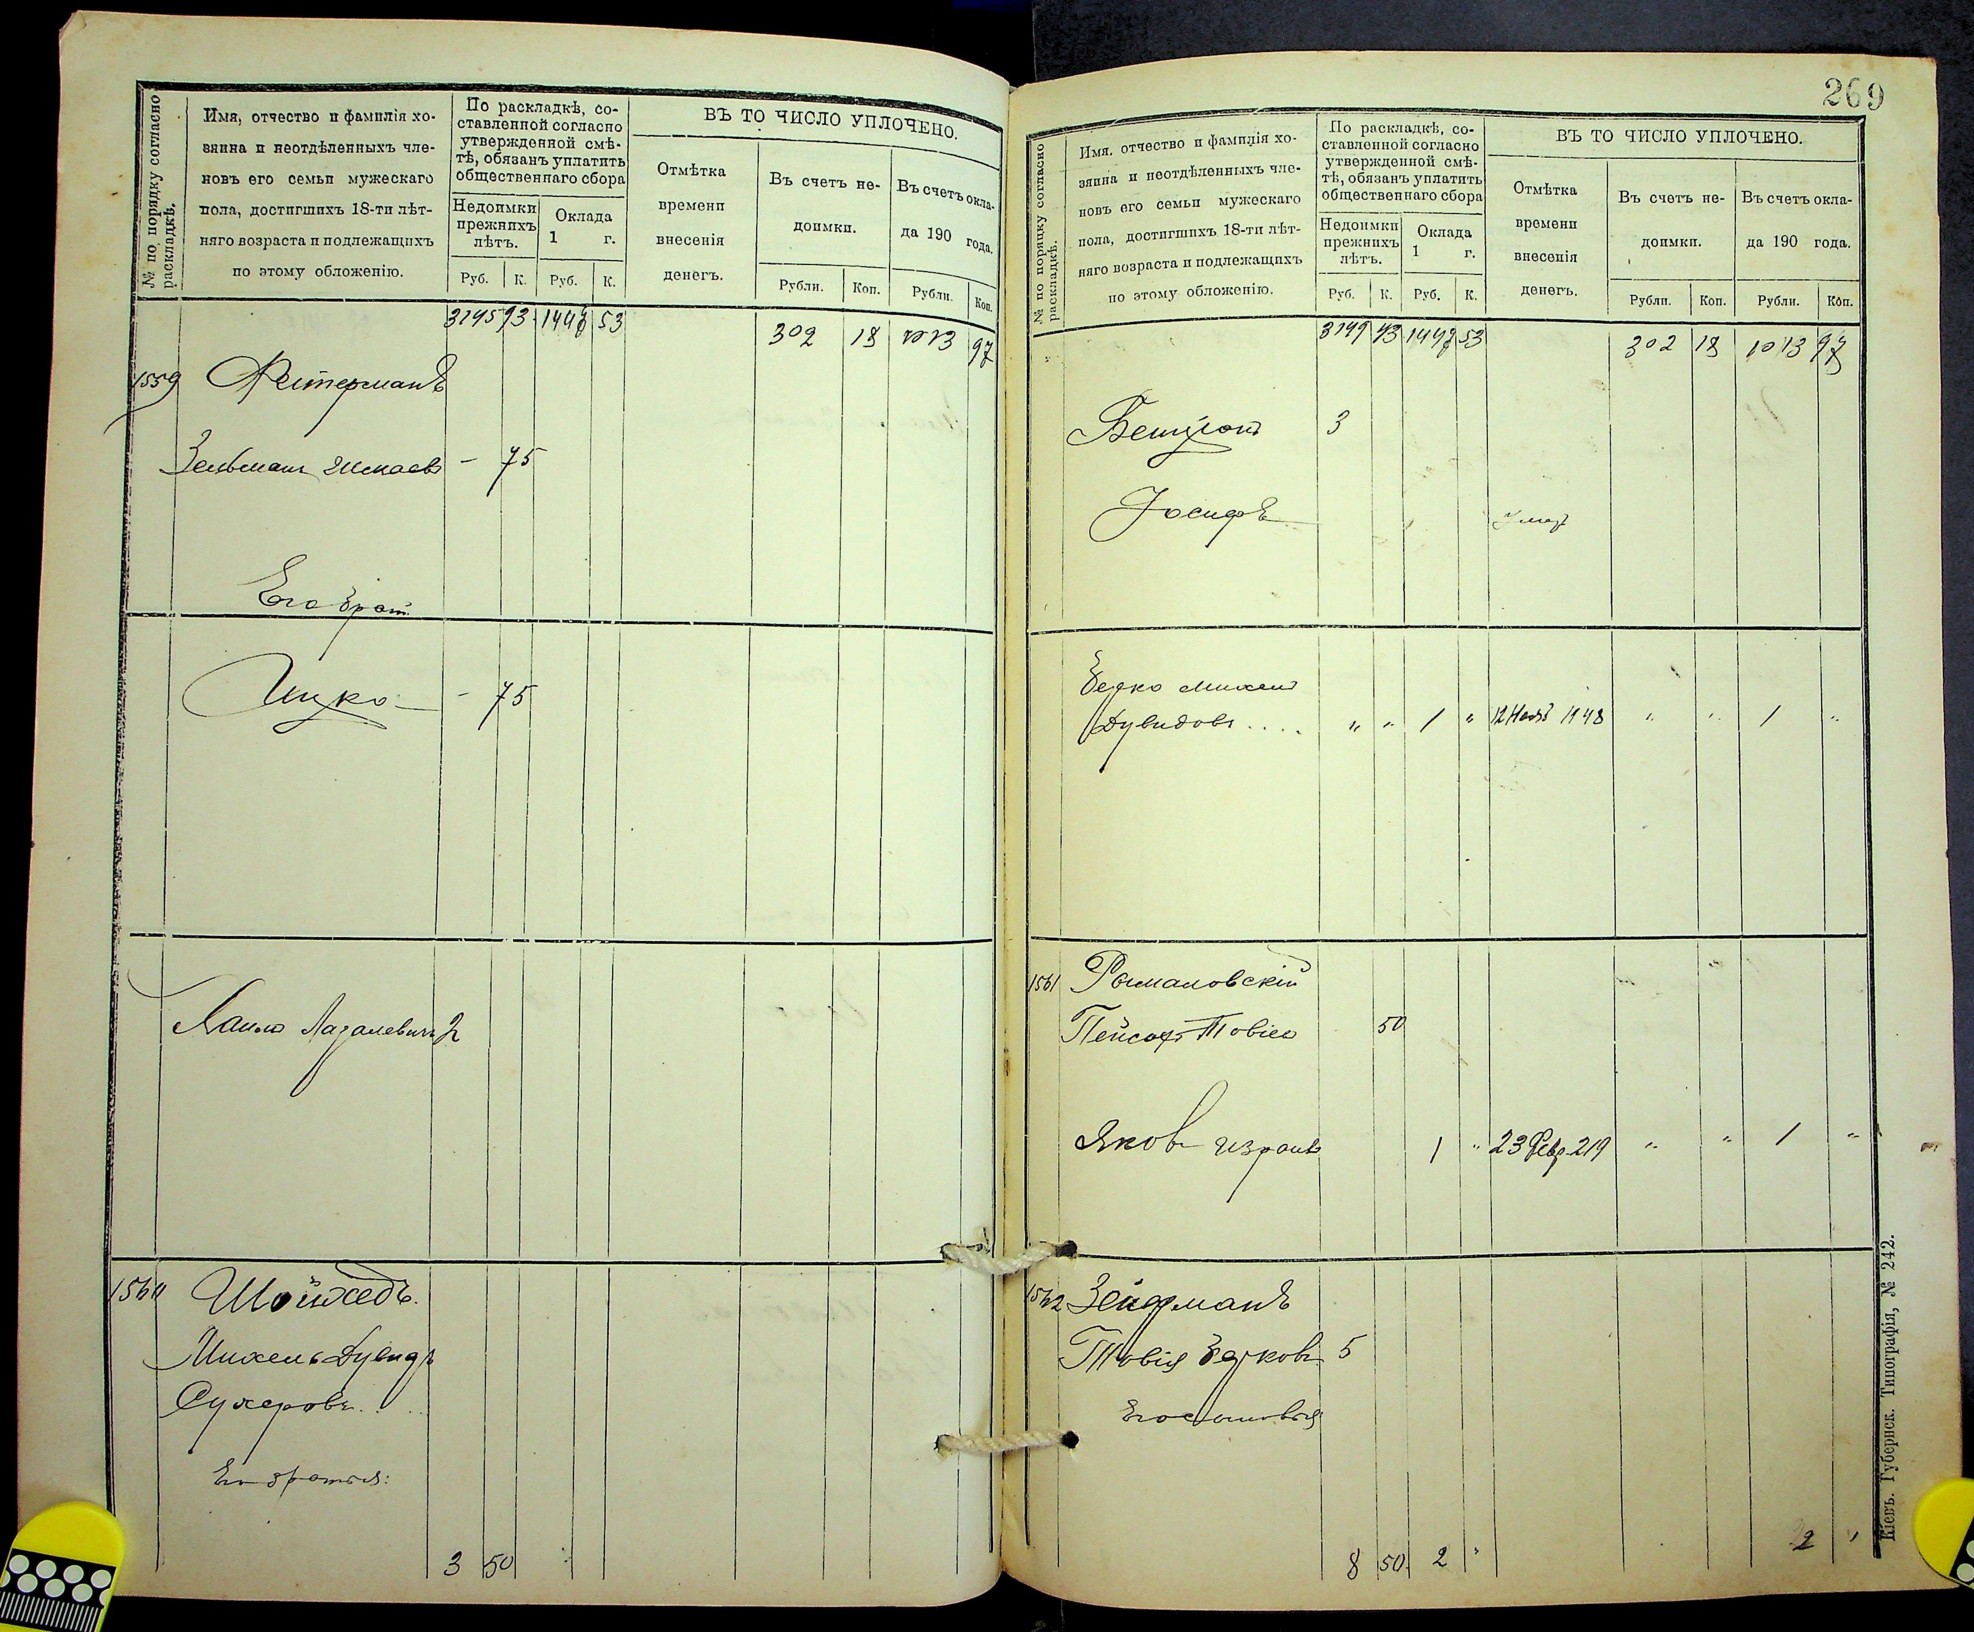 № по порядку согласно раскладкѣ.
Имя, отчество и фамилія хо-
зяина и неотдѣленныхъ чле-
новъ его семьи мужескаго
пола, достигшихъ 18-ти лѣт-
няго возраста и подлежащихъ
по этому обложенію.
По раскладкѣ, со-
ставленной согласно
утвержденной смѣ-
тѣ, обязанъ уплатить
общественнаго сбора
Недоимки
прежнихъ
лѣтъ.
Оклада
1 г.
Руб. К. Руб. К.
ВЪ ТО ЧИСЛО УПЛОЧЕНО.
Отмѣтка
времени
внесенія
денегъ.
Въ счетъ не-
доимки.
Рубли. Коп.
Въ счетъ окла-
да 190 года.
Рубли. Коп.
53
302 18 1013 97
1559
Зельманъ - 75
Его братъ
Ицко - 75
2
1560
Михель Дувидъ
Сухеровъ. . .
Его братья:
3 50
269
№ по порядку согласно раскладкѣ.
Имя, отчество и фамилія хо-
зяина и неотдѣленныхъ чле-
новъ его семьи мужескаго
пола, достигшихъ 18-ти лѣт-
няго возраста и подлежащихъ
по этому обложенію.
По раскладкѣ, со-
ставленной согласно
утвержденной смѣ-
тѣ, обязанъ уплатить
общественнаго сбора
Недоимки
прежнихъ
лѣтъ.
Оклада
1 г.
Руб. К. Руб. К.
ВЪ ТО ЧИСЛО УПЛОЧЕНО.
Отмѣтка
времени
внесенія
денегъ.
Въ счетъ не-
доимки.
Рубли. Коп.
Въ счетъ окла-
да 190 года.
Рубли. Коп.
3149 43 1447 53 302 18 1013 97
Бенціонъ 3
Іосифъ
Берко Михель
Дувидовъ . . . . " " 1 " 12 1948 " " 1 "
1561 Рымаловскій
Пейсахъ Товіев 50
Яковъ Израил 1 " 23 Февр 219 " " 1 "
1562 Зейдманъ
Товія Берковъ 5
Его сыновья
8 50 2 " 2 "
Кіевъ. Губернск. Типографія, № 242.